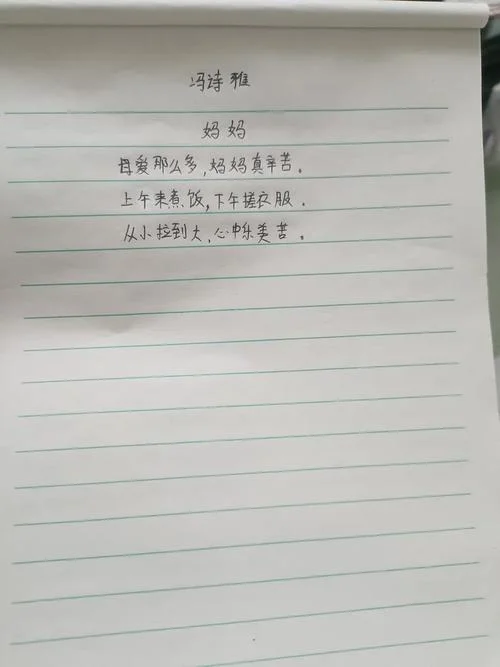 冯诗雅
妈妈
母爱那么多,妈妈真辛苦。
上午来煮饭,下午搓衣服.
从小拉到大,心中乐美苦。